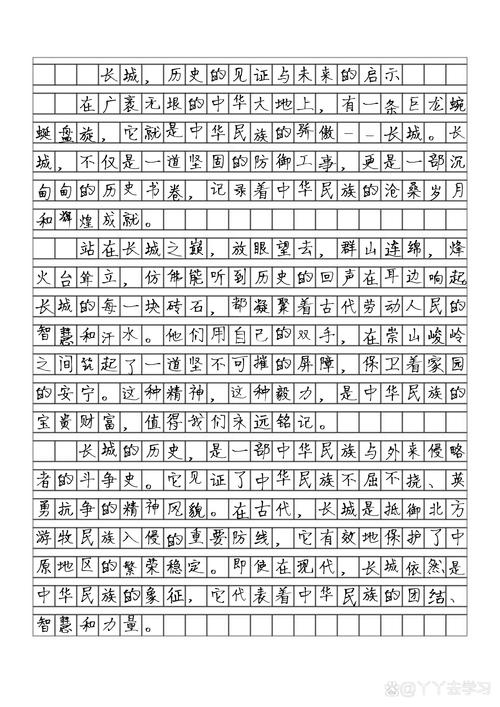 长城，历史的见证与未来的启示
在广袤无垠的中华大地上，有一条巨龙蜿
蜒盘旋，它就是中华民族的骄傲——长城。长
城，不仅是一道坚固的防御工事，更是一部沉
甸甸的历史书卷，记录着中华民族的沧桑岁月
和辉煌成就。
站在长城之巅，放眼望去，群山连绵，烽
火台耸立，仿佛能听到历史的回声在耳边响起。
长城的每一块砖石，都凝聚着古代劳动人民的
智慧和汗水。他们用自己的双手，在崇山峻岭
之间筑起了一道坚不可摧的屏障，保卫着家园
的安宁。这种精神，这种毅力，是中华民族的
宝贵财富，值得我们永远铭记。
长城的历史，是一部中华民族与外来侵略
者的斗争史。它见证了中华民族不屈不挠、英
勇抗争的精神风貌。在古代，长城是抵御北方
游牧民族入侵的重要防线，它有效地保护了中
原地区的繁荣稳定。即使在现代，长城依然是
中华民族的象征，它代表着中华民族的团结、
智慧和力量。
@丫丫去学习